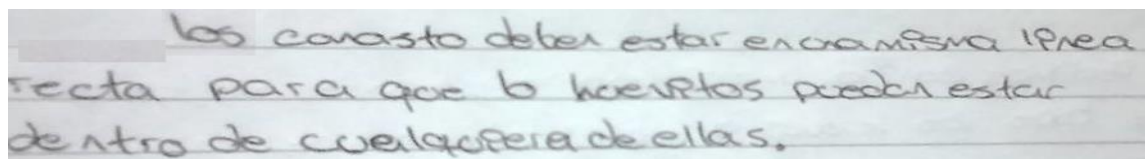 los canasto deben estar en la misma linea
recta para que lo huevitos puedan estar
dentro de cualquiera de ellas.